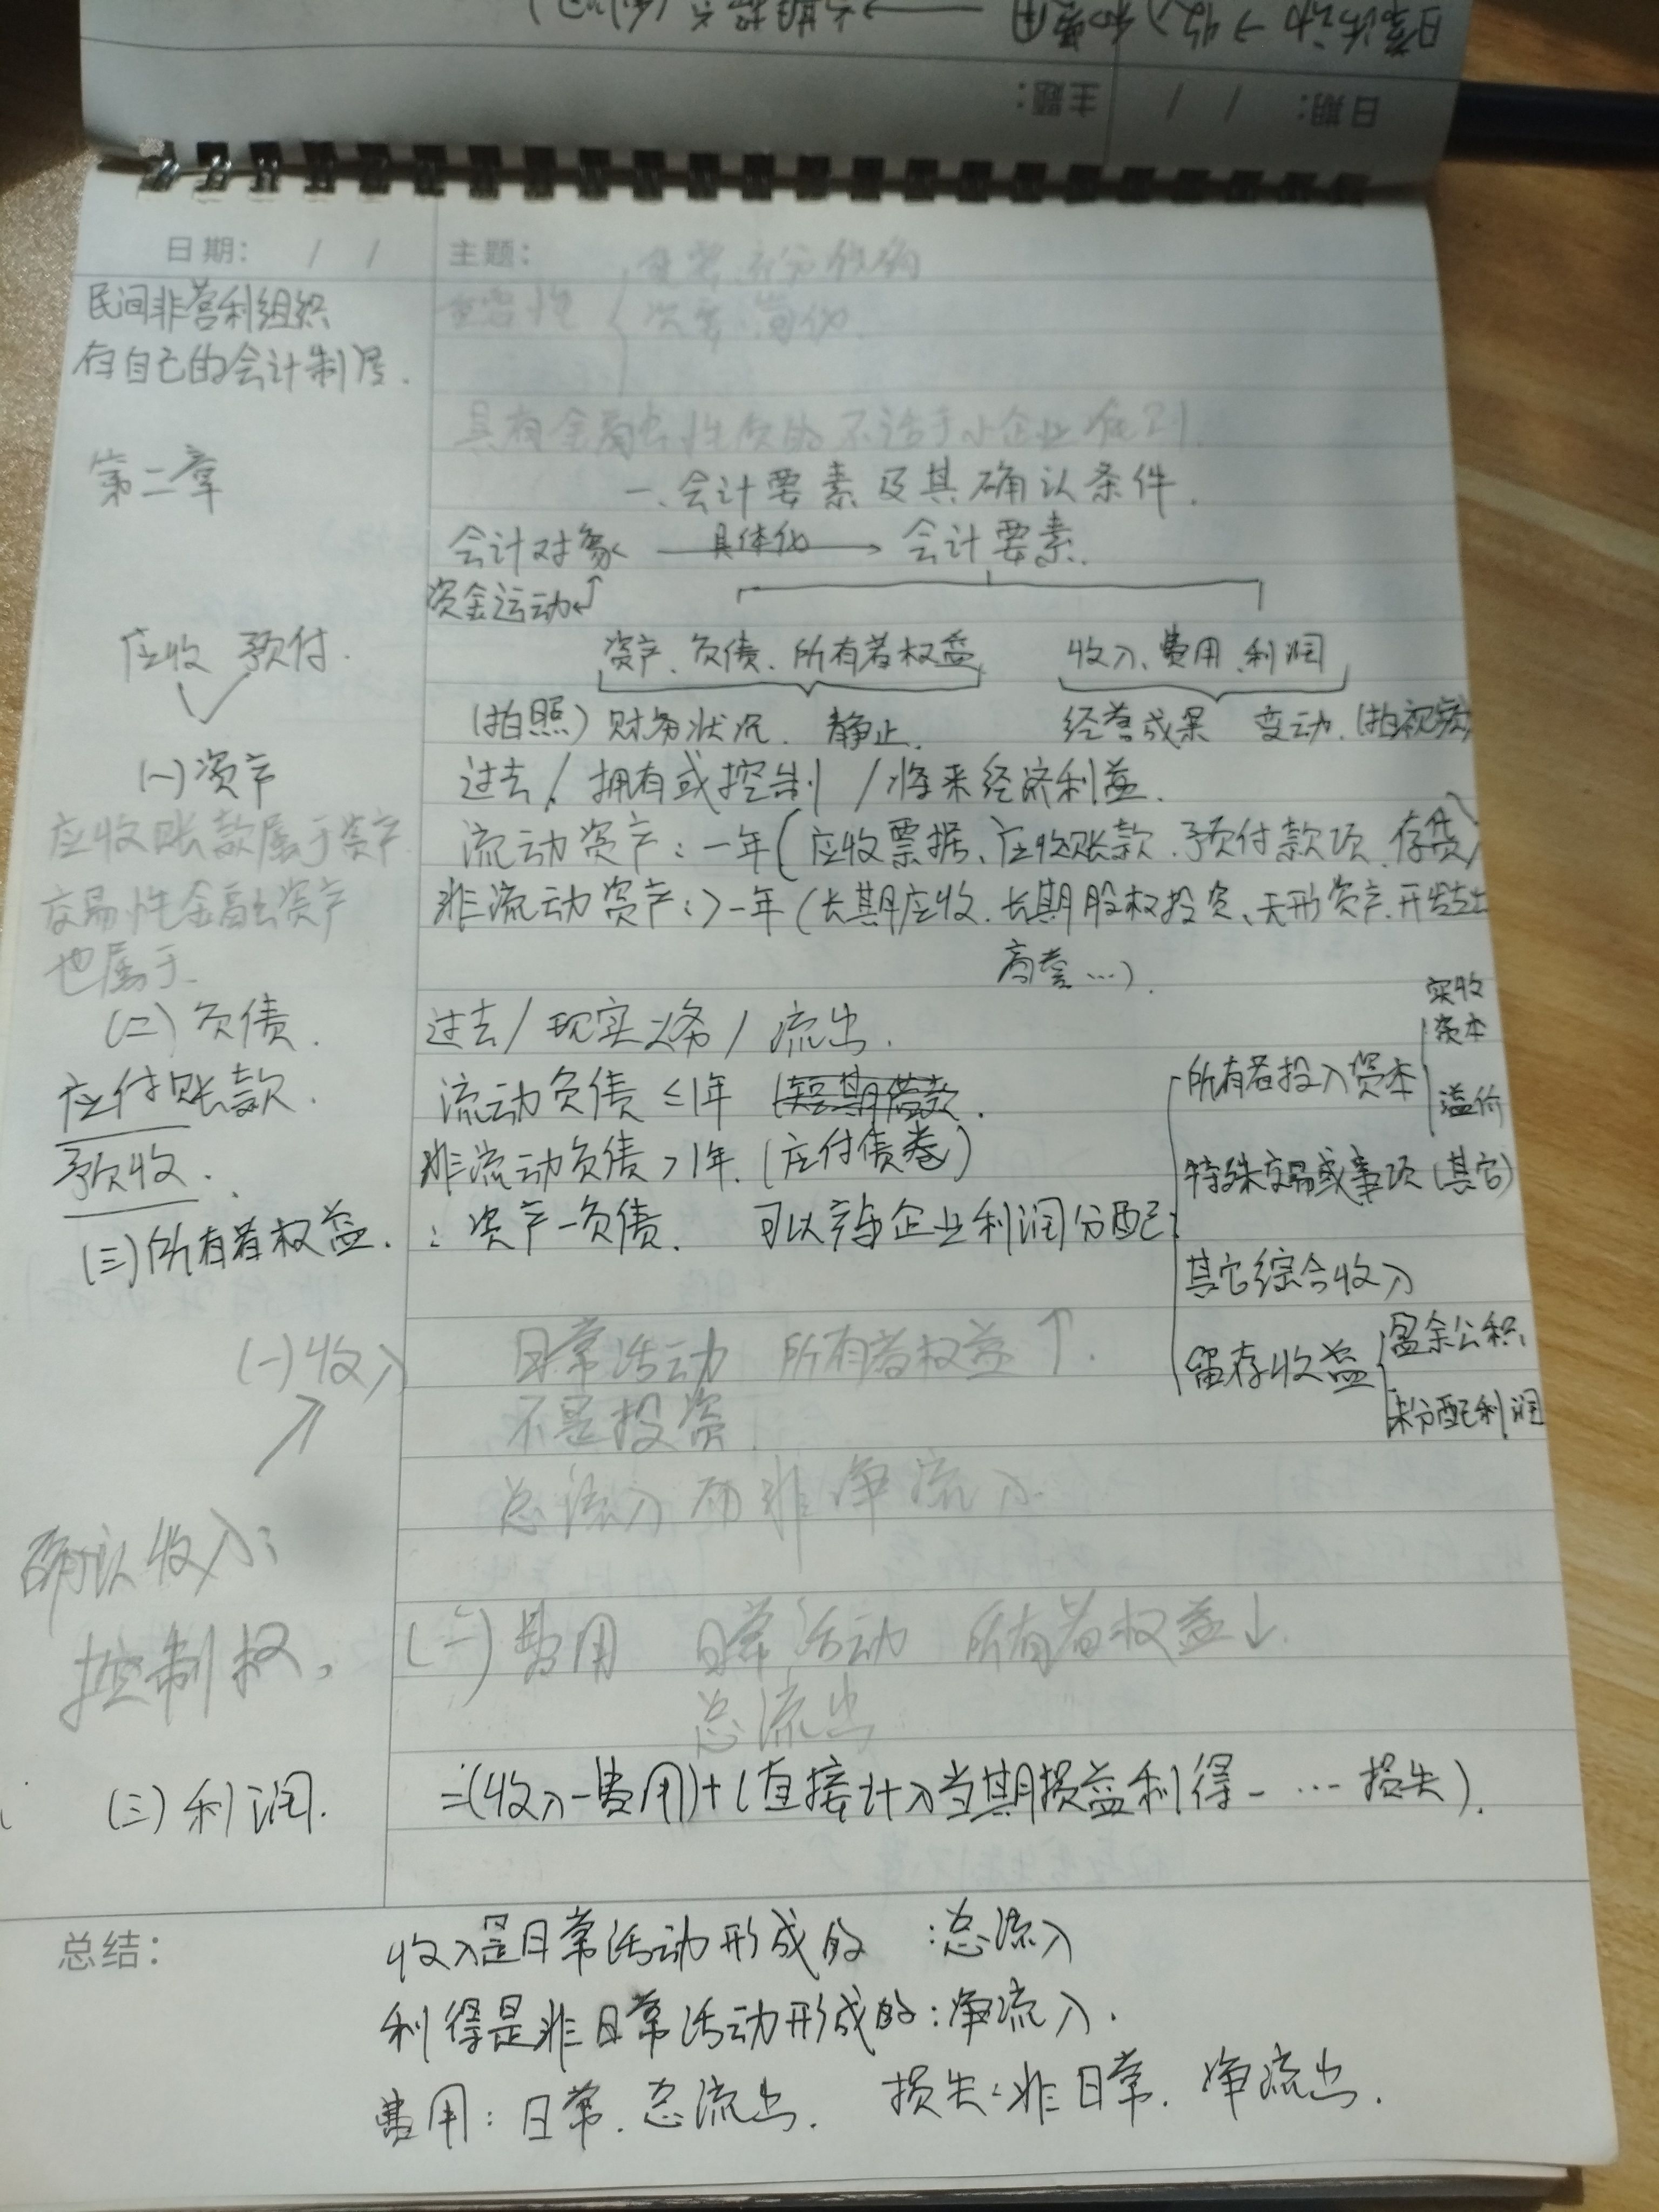 日期： / /
主题：
日期： / /
主题：
重要 充分 准确
重要性
次要 简化
民间非营利组织
存自己的会计制度.
具有金融性质的不适于小企业准则.
第二章
一.会计要素及其确认条件.
会计对象 具体化 会计要素.
资金运动
应收 预付.
资产、负债、所有者权益
收入、费用、利润
(拍照) 财务状况. 静止.
经营成果 变动.(拍视频)
(一)资产
过去/拥有或控制/将来经济利益.
应收账款属于资产
交易性金融资产
也属于.
流动资产：一年(应收票据、应收账款.预付款项.存货)
非流动资产：>一年(长期应收.长期股权投资、无形资产.开发支出
商誉…).
(二)负债.
过去/现实义务/流出.
应付账款.
预收.
流动负债 ≤1年 (短期借款.
非流动负债>1年.(应付债卷)
(三)所有者权益.
：资产-负债. 可以参与企业利润分配
所有者投入资本
实收
资本
溢价
特殊交易或事项(其它)
其它综合收入
留存收益
盈余公积.
未分配利润
(一)收入
日常活动 所有者权益↑.
不是投资.
总流入而非净流入.
确认收入：
控制权.
(二)费用 日常活动 所有者权益↓.
总流出
(三)利润.
=(收入-费用)+(直接计入当期损益利得-…损失).
总结：
收入是日常活动形成的 ：总流入
利得是非日常活动形成的：净流入.
费用：日常.总流出. 损失：非日常.净流出.